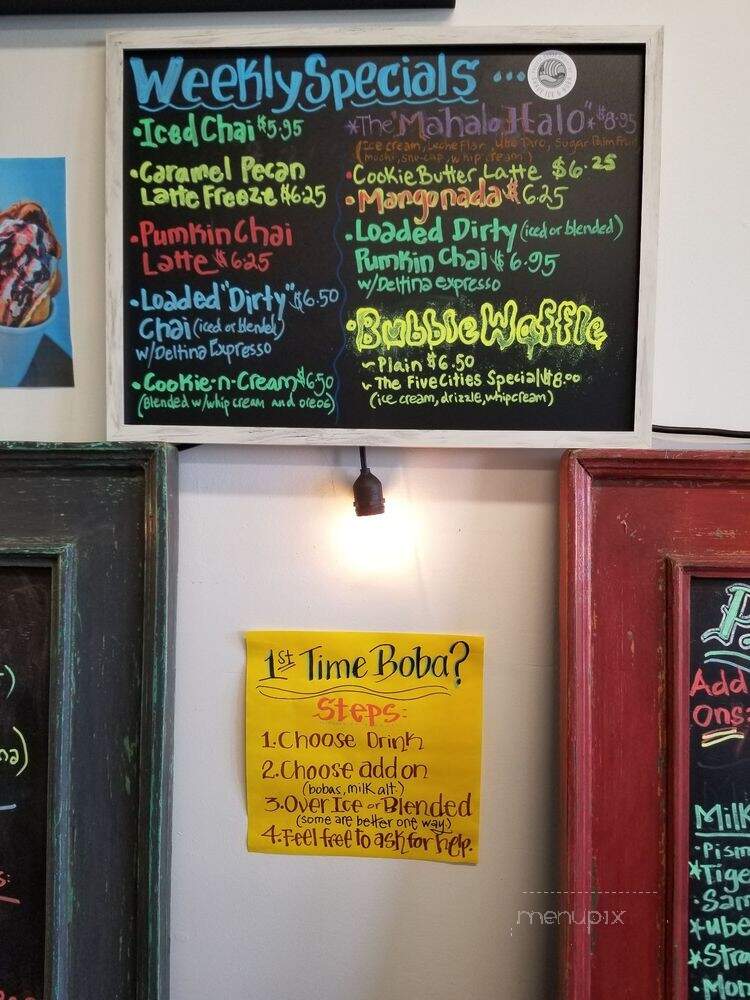 Weekly Specials ...
•Iced Chai $5.95
•Caramel Pecan
Latte Freeze $6.25
•Pumkin Chai
Latte $6.25
•Loaded "Dirty" $6.50
Chai (iced or blended)
w/Deltina Expresso
•Cookie-n-Cream $6.50
(Blended w/whip cream and oreos)
*The "Mahalo Halo" * $8.95
(Ice cream, Leche Flan, Ube Taro, Sugar Palm Fruit
mochi, sno-cap, whip cream)
•Cookie Butter Latte $6.25
•Mangonada $6.25
•Loaded Dirty (iced or blended)
Pumkin Chai $6.95
w/Deltina expresso
•Bubble Waffle
~Plain $6.50
~The Five Cities Special $8.00
(ice cream, drizzle, whipcream)
1st Time Boba?
Steps:
1. Choose Drink
2. Choose add on
(bobas, milk alt.)
3. Over Ice or Blended
(some are better one way.)
4. Feel free to ask for help.
Add
Ons
Milk
•Pism
*Tige
•Sam
*ube
*Stra
•Mon
menupix